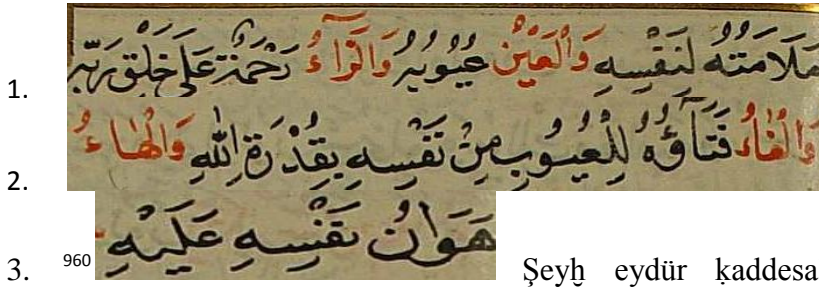 1. مَلَامَتُهُ لِنَفْسِهِ وَالْعَيْنُ عُيُوبِهِ وَالرَّآءُ رَحْمَةٌ عَلَى خَلْقِ رَبِّهِ
2. وَالْفَآءُ فَنَآؤُهُ لِلْعُيُوبِ مِنْ نَفْسِهِ بِقُدْرَةِ اللّٰهِ وَالْهَآءُ
3. 960 هَوَانُ نَفْسِهِ عَلَيْهِ Şeyḫ eydür ḳaddesa